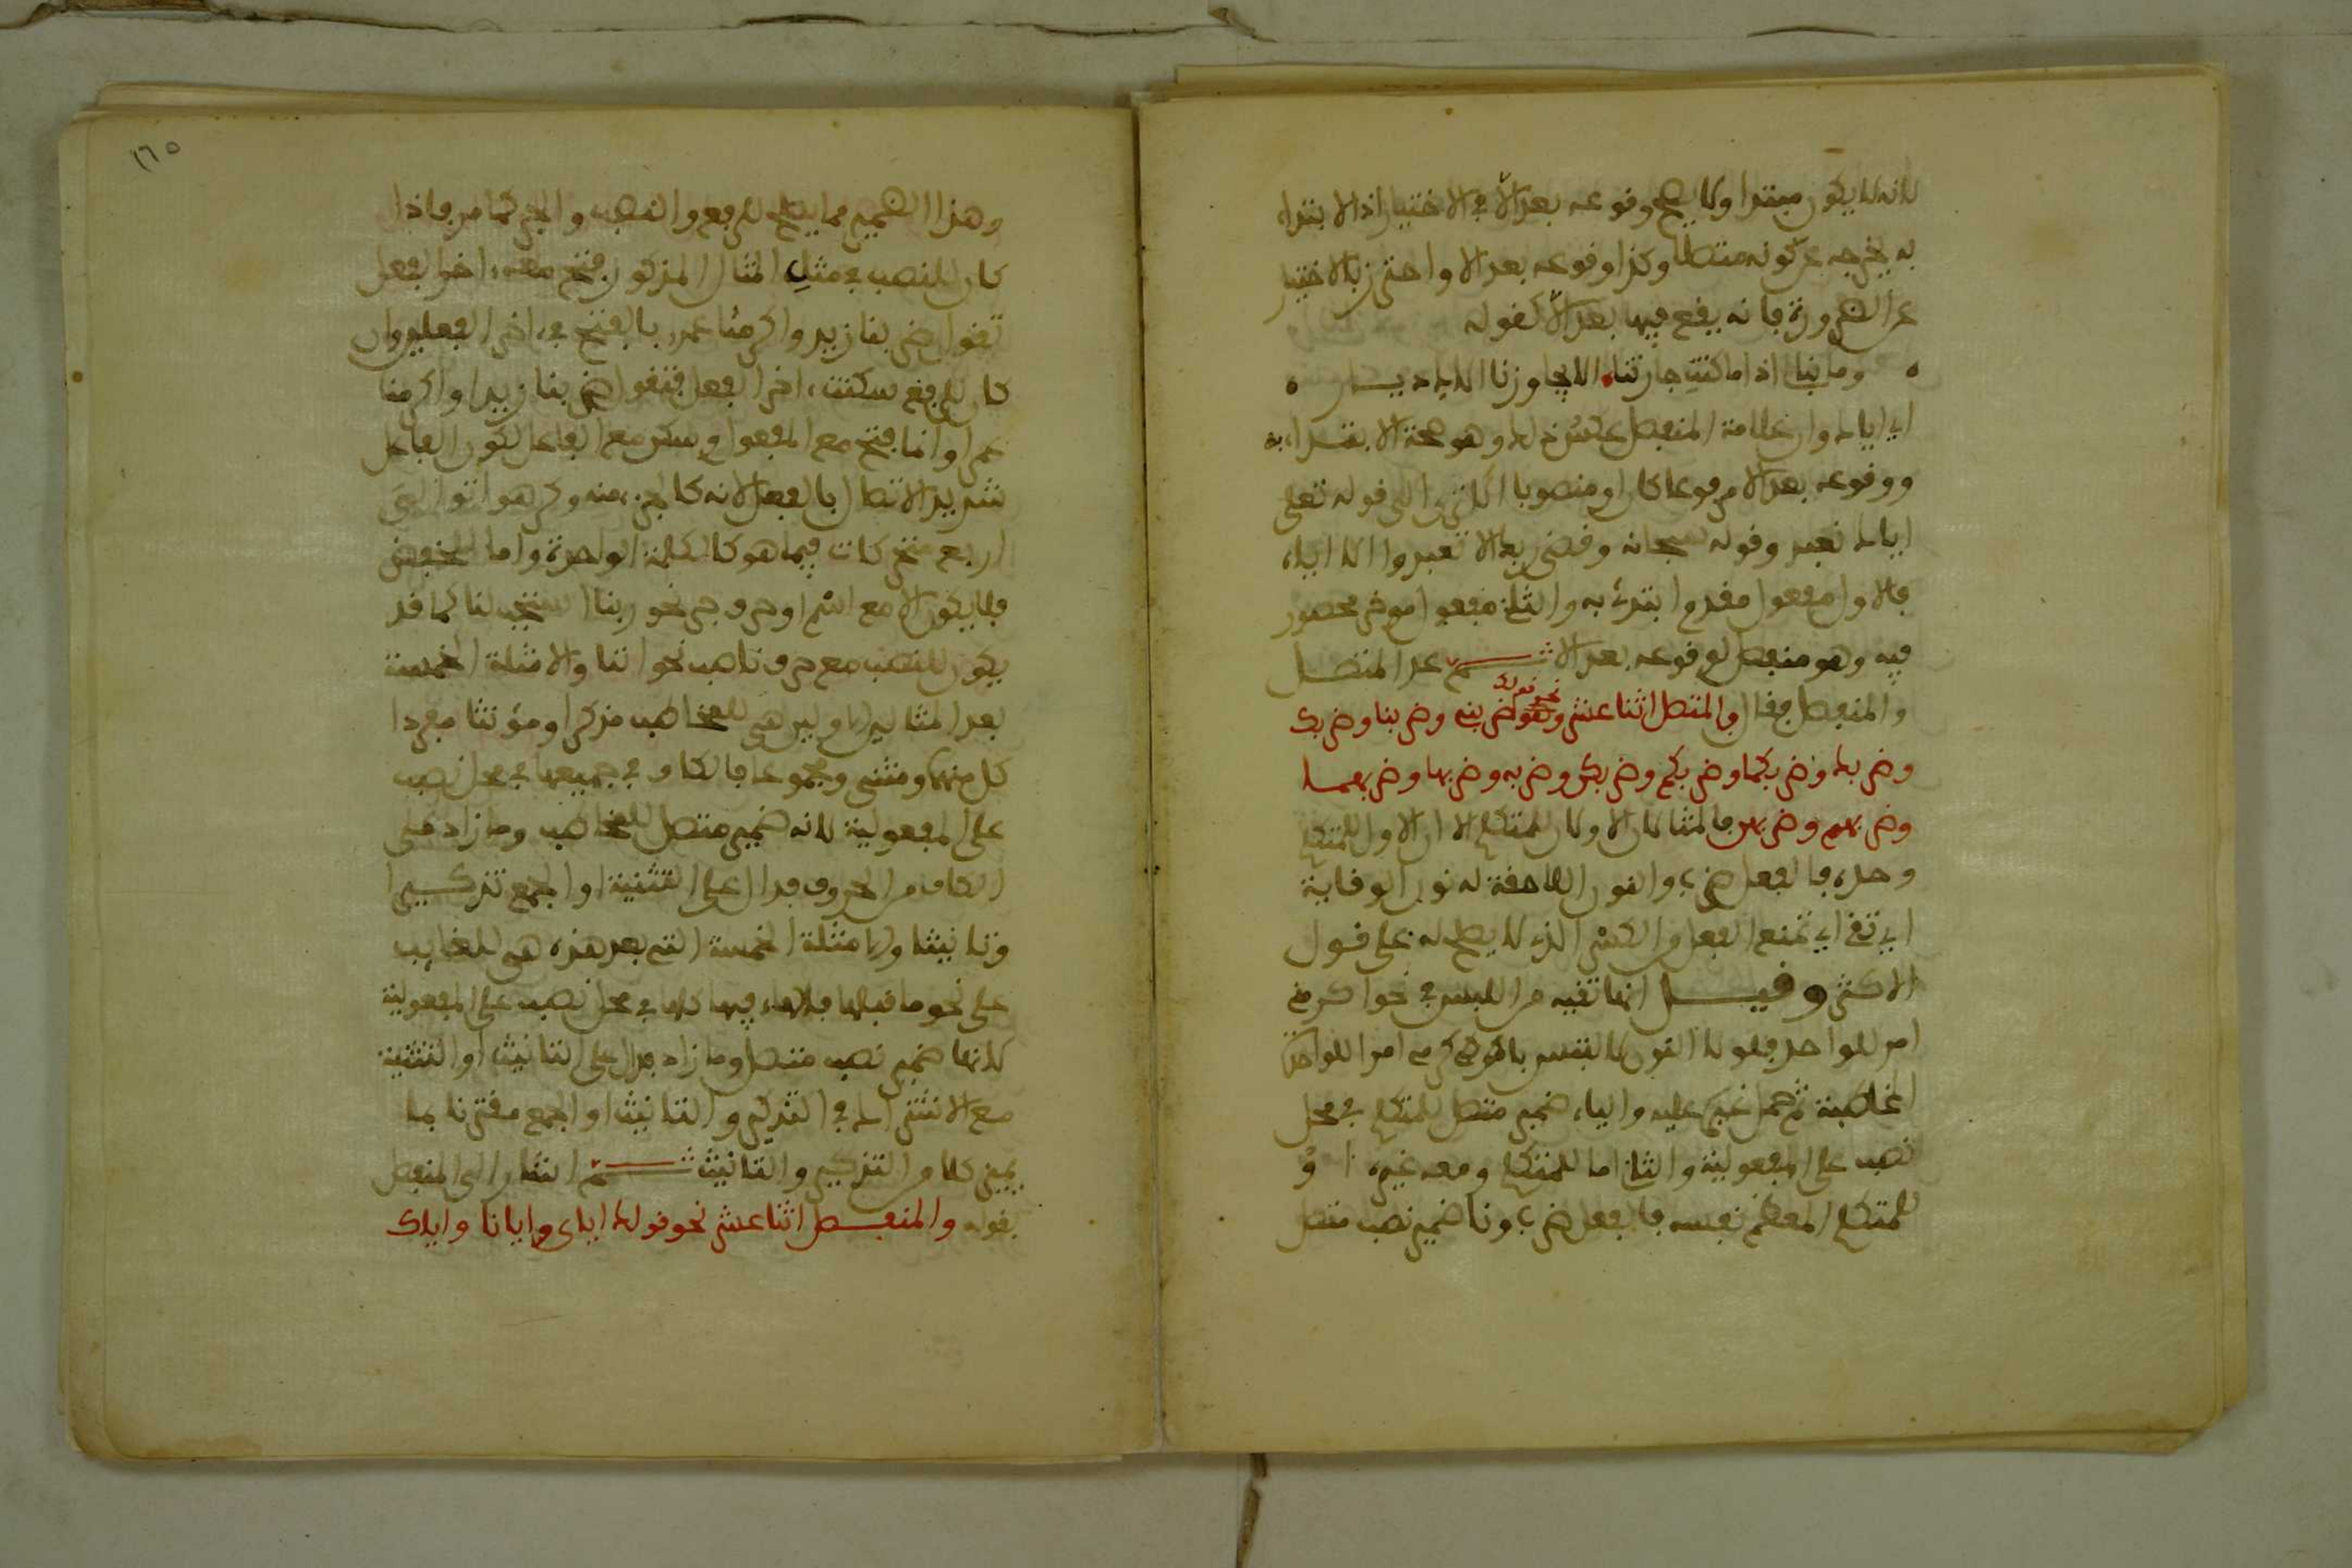 لانه لا يكون مبتدا ولا يصح وقوعه بعد الا في الاختيار اذ الابتداء
به يخرجه عن كونه متصلا وكذا وقوعه بعد الا واحترز بالاختيار
عن الضرورة فانه يقع فيها بعد الا كقوله
وما نبالي اذا ما كنت جارتنا الا يجاورنا الاك ديار
اي اياك وان علامة المنفصل عكس ذلك وهو صحة الابتداء به
ووقوعه بعد الا مرفوعا كان او منصوبا الى قوله تعلى
اياك نعبد وقوله سبحانه وقضى ربك الا تعبدوا الا اياه
فالاول مفعول مقدم ابتدئ به والثاني مفعول موخر محصور
فيه وهو منفصل لوقوعه بعد الا ثم عد المتصل
والمنفصل فقال والمتصل اثنا عشر نحو قولك ضربني وضربنا وضربك
وضربك وضربكما وضربكم وضربكن وضربه وضربها وضربهما
وضربهم وضربهن فالمثالان الاولان للمتكلم الا ان الاول للمتكلم
وحده فالفعل ضرب والنون اللاحقة له نون الوقاية
اي تقي اي تمنع الفعل من الكسر الذي لا يصلح له على قول
الاكثر وقيل انها تقيه من اللبس في نحو اكرمني
امر للواحد فلولا النون لالتبس باكرمي امر الواحدة
المخاطبة ثم حمل غيره عليه والياء ضمير متصل للمتكلم في محل
نصب على المفعولية والثاني اما للمتكلم ومعه غيره او
للمتكلم المعظم نفسه فالفعل ضرب ونا ضمير نصب متصل
١٦٥
وهذا الضمير مما يصلح للرفع والنصب والجر كما مر فاذا
كان للنصب في مثل المثال المذكور فتح معه اخر الفعل
تقول ضربنا زيد واكرمنا عمرو بالفتح في اخر الفعلين وان
كان للرفع سكنت اخر الفعل فتقول ضربنا زيدا واكرمنا
عمرا وانما فتح مع المفعول وسكن مع الفاعل لكون الفاعل
شديد الاتصال بالفعل لانه كالجزء منه وكرهوا توالي
اربع متحركات فيما هو كالكلمة الواحدة واما المخفوض
فلا يكون الا مع اسم او حرف جر نحو ربنا استجب لنا كما قد
يكون للنصب مع حرف ناصب نحو اننا والامثلة الخمسة
بعد المثالين الاولين هي للمخاطب مذكرا ومؤنثا مفردا
كل منهما ومثنى ومجموعا فالكاف في جميعها في محل نصب
على المفعولية لانه ضمير متصل للمخاطب وما زاد على
الكاف من الحروف فدال على التثنية او الجمع تذكيرا
وتانيثا والامثلة الخمسة التي بعد هذه هي للغايب
على نحو ما قبلها فالهاء فيها كلها في محل نصب على المفعولية
لانها ضمير نصب متصل وما زاد فدال على التانيث او التثنية
مع الاشتراك في التذكير والتانيث او الجمع مقترنا بما
يميز كلا من التذكير والتانيث ثم اشار الى المنفصل
بقوله والمنفصل اثنا عشر نحو قولك اياي وايانا واياك